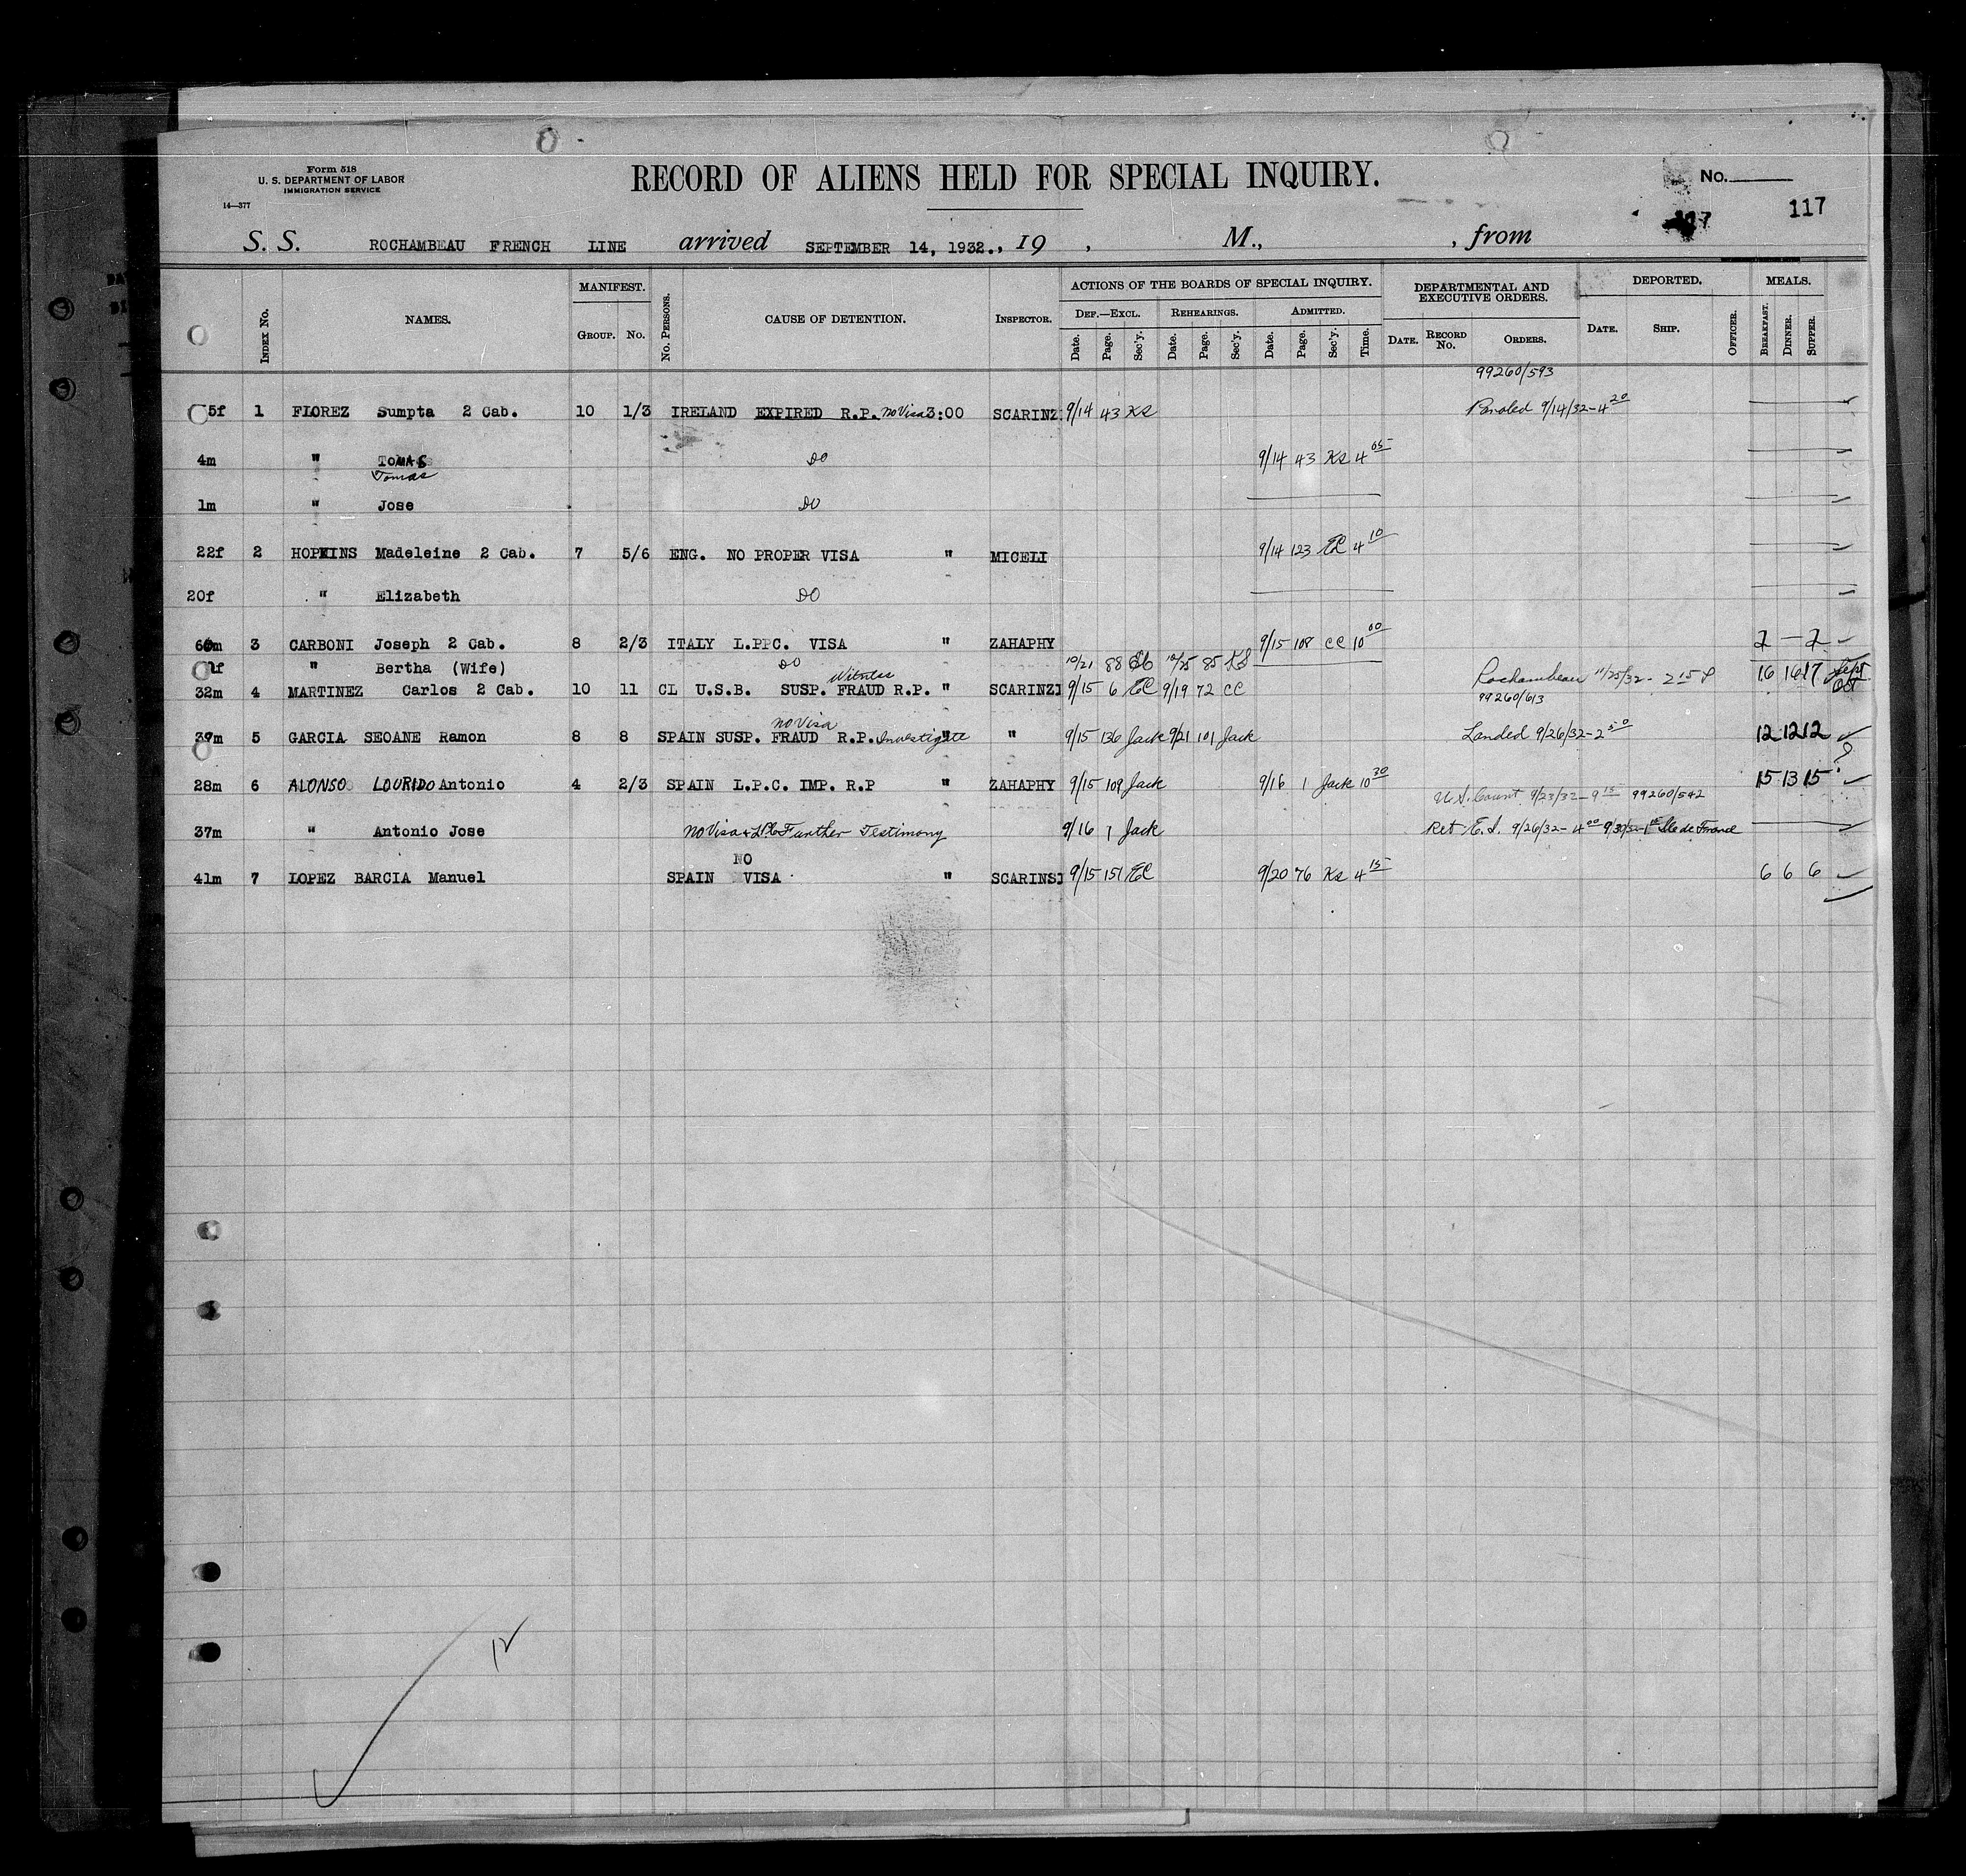 Form 518
U. S. DEPARTMENT OF LABOR
IMMIGRATION SERVICE
14—377
RECORD OF ALIENS HELD FOR SPECIAL INQUIRY.
No.
117
S. S. ROCHAMBEAU FRENCH LINE arrived SEPTEMBER 14, 1932., 19 , M., , from
INDEX No. NAMES. MANIFEST. GROUP. No. No. PERSONS. CAUSE OF DETENTION. INSPECTOR. ACTIONS OF THE BOARDS OF SPECIAL INQUIRY. DEF.—EXCL. Date. Page. Sec'y. REHEARINGS. Date. Page. Sec'y. ADMITTED. Date. Page. Sec'y. Time. DEPARTMENTAL AND EXECUTIVE ORDERS. DATE. RECORD No. ORDERS. DEPORTED. DATE. SHIP. OFFICER. MEALS. BREAKFAST. DINNER. SUPPER.
99260/593
5f 1 FLOREZ Sumpta 2 Cab. 10 1/3 IRELAND EXPIRED R.P. no Visa 3:00 SCARINZ 9/14 43 KS Paroled 9/14/32-4 20
4m " TOMAS DO 9/14 43 KS 4 05
Tomas
1m " Jose DO
22f 2 HOPKINS Madeleine 2 Cab. 7 5/6 ENG. NO PROPER VISA " MICELI 9/14 123 EC 4 10
20f " Elizabeth DO
60m 3 CARBONI Joseph 2 Cab. 8 2/3 ITALY L.PPC. VISA " ZAHAPHY 9/15 108 CC 10 00 2 — 2
f " Bertha (Wife) DO 10/21 88 10/25 85 KS
Witness
32m 4 MARTINEZ Carlos 2 Cab. 10 11 CL U.S.B. SUSP. FRAUD R.P. " SCARINZI 9/15 6 EC 9/19 72 CC Rochambeau 11/25/32- 2 15 16 16 17 Sept Oct
99260/613
no Visa
39m 5 GARCIA SEOANE Ramon 8 8 SPAIN SUSP. FRAUD R.P. Investigate " " 9/15 136 Jack 9/21 101 Jack Landed 9/26/32-2 50 12 12 12
28m 6 ALONSO LOURIDO Antonio 4 2/3 SPAIN L.P.C. IMP. R.P " ZAHAPHY 9/15 109 Jack 9/16 1 Jack 10 30 15 13 15
U.S. Court 9/23/32-9 15 99260/542
37m " Antonio Jose no Visa & LPC Further Testimony 9/16 1 Jack Ret E.I. 9/26/32-4 00 Ile de France
NO
41m 7 LOPEZ BARCIA Manuel SPAIN VISA " SCARINSI 9/15 151 EC 9/20 76 KS 4 15 6 6 6
12